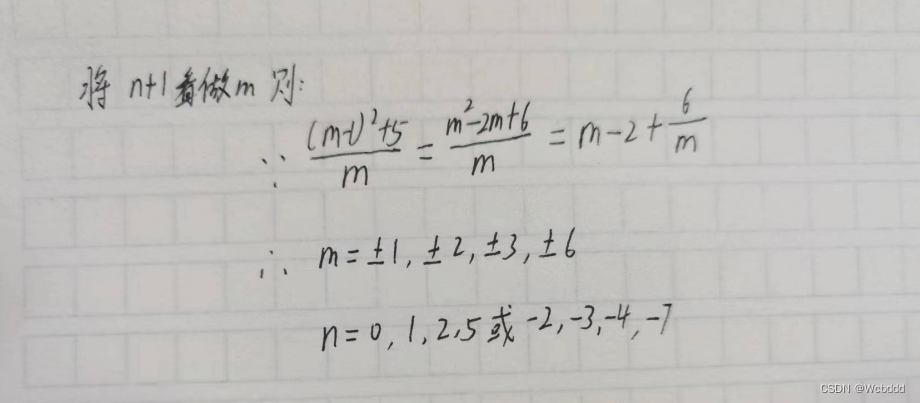 将 n+1 看做 m 则:
∵ \frac{(m-1)^2+5}{m} = \frac{m^2-2m+6}{m} = m-2+\frac{6}{m}
∴ m=±1, ±2, ±3, ±6
n=0, 1, 2, 5 或 -2, -3, -4, -7
CSDN @Webddd